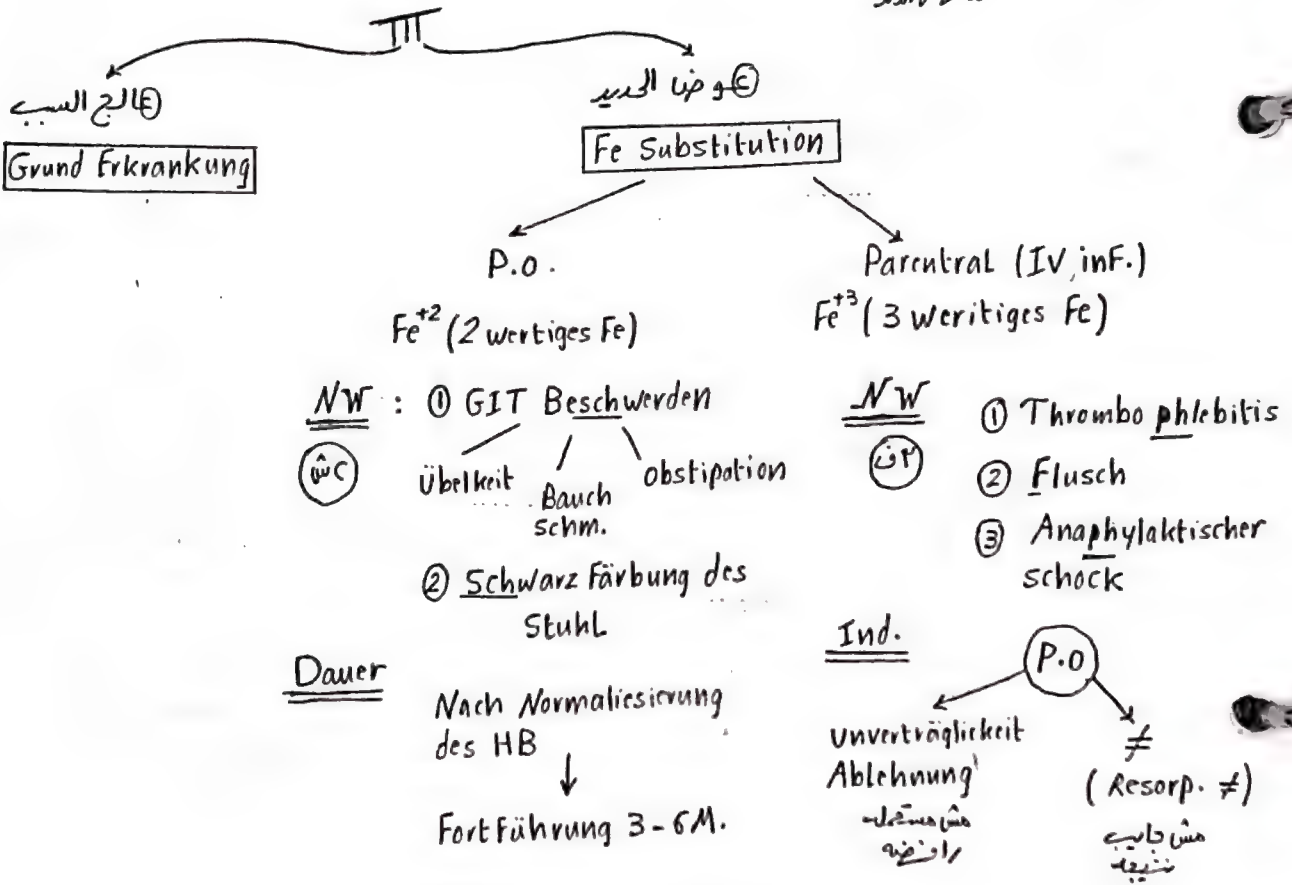 TTT
ⓔالج السبب
Grund Erkrankung
ⓔوضنا الحديد
Fe Substitution
P.o.
Fe+2 (2 wertiges Fe)
NW : ① GIT Beschwerden
Übelkeit
Bauch
schm.
obstipation
② Schwarz Färbung des
Stuhl
Dauer
Nach Normaliesierung
des HB
↓
Fort Führung 3-6M.
Parentral (IV, inF.)
Fe+3 (3 weritiges Fe)
NW
٣ف
① Thrombo phlebitis
② Flusch
③ Anaphylaktischer
schock
Ind.
P.O
unverträglickeit
Ablehnung
مش مستحمله
رافضه
≠
(Resorp. ≠)
مش جايب
نتيجه